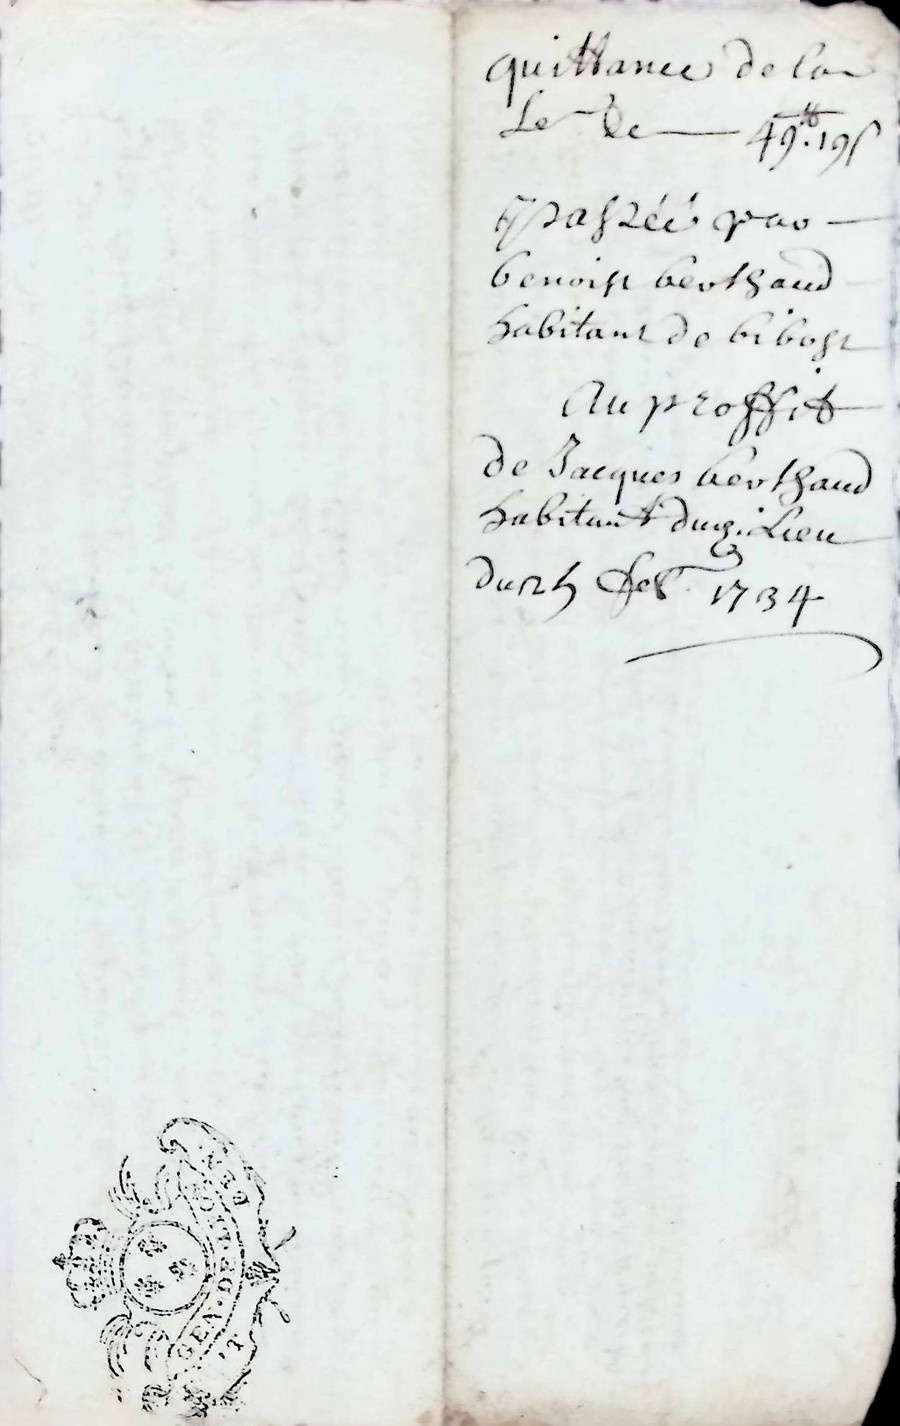 quittance de la
Le de 49.tt 19s
passéé par
benoist berthaud
habitant de bibost
Au proffit
de Jacques berthaud
habitant dud. Lieu
du 25 feb. 1734
GEN·DE·LYON